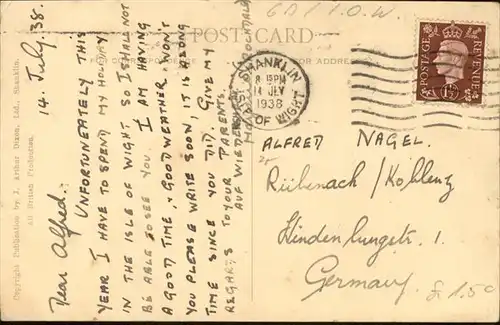 GB/I.O.W
POST CARD
FOR ADDRESS
14 July '38.
Dear Alfred.
UNFORTUNEATELY THIS
YEAR I HAVE TO SPEND MY HOLIDAY
IN THE ISLE OF WIGHT SO I SHALL NOT
BE ABLE TO SEE YOU. I AM HAVING
A GOOD TIME & GOOD WEATHER. WON'T
YOU PLEASE WRITE SOON, IT IS A LONG
TIME SINCE YOU DID. GIVE MY
REGARDS TO YOUR PARENTS.
AUF WIEDERSEHEN
SHANKLIN
8 15PM
14 JLY
1938
OF WIGHT
POSTAGE
REVENUE
1½D
ALFRED NAGEL.
Rübenach / Koblenz
Hindenburgstr. 1.
Germany.
£1.50
Copyright Publication by J. Arthur Dixon, Ltd., Shanklin.
All British Production.